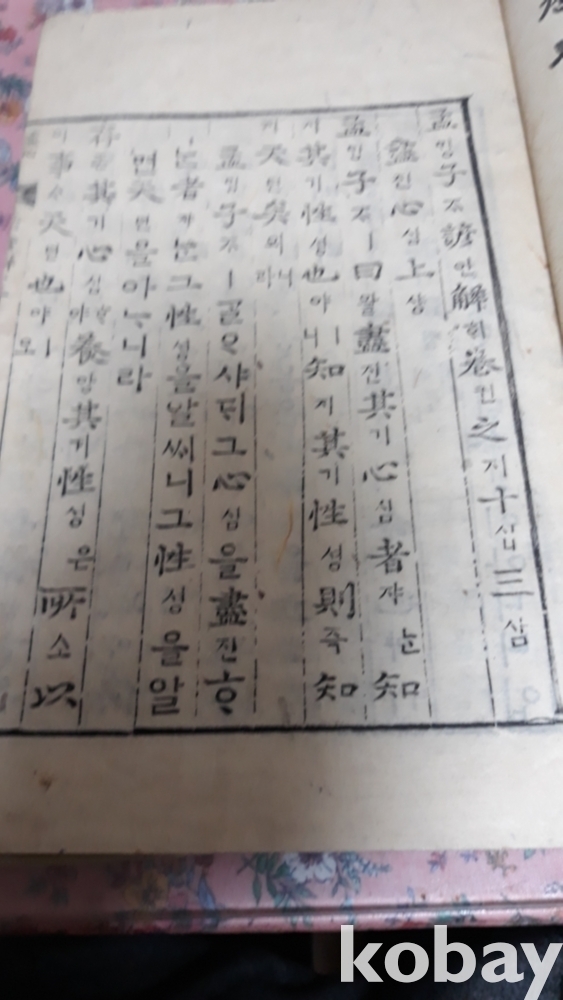 孟밍子ᄌᆞ諺언解ᄒᆡ卷권之지十십三삼
盡진心심上샹
孟밍子ᄌᆞㅣ曰왈盡진其기心심者쟈ᄂᆞᆫ知
지其기性셩也야ㅣ니知지其기性셩則즉知
지天텬矣의니라
孟밍子ᄌᆞㅣ ᄀᆞᆯᄋᆞ샤ᄃᆡ 그 心심을 盡진ᄒᆞ
ᄂᆞᆫ 者쟈ᄂᆞᆫ 그 性셩을 알ᄊᆡ니 그 性셩을 알
면 天텬을 아ᄂᆞ니라
存존其기心심ᄒᆞ야養양其기性셩은所소以
이事ᄉᆞ天텬也야ㅣ오
kobay